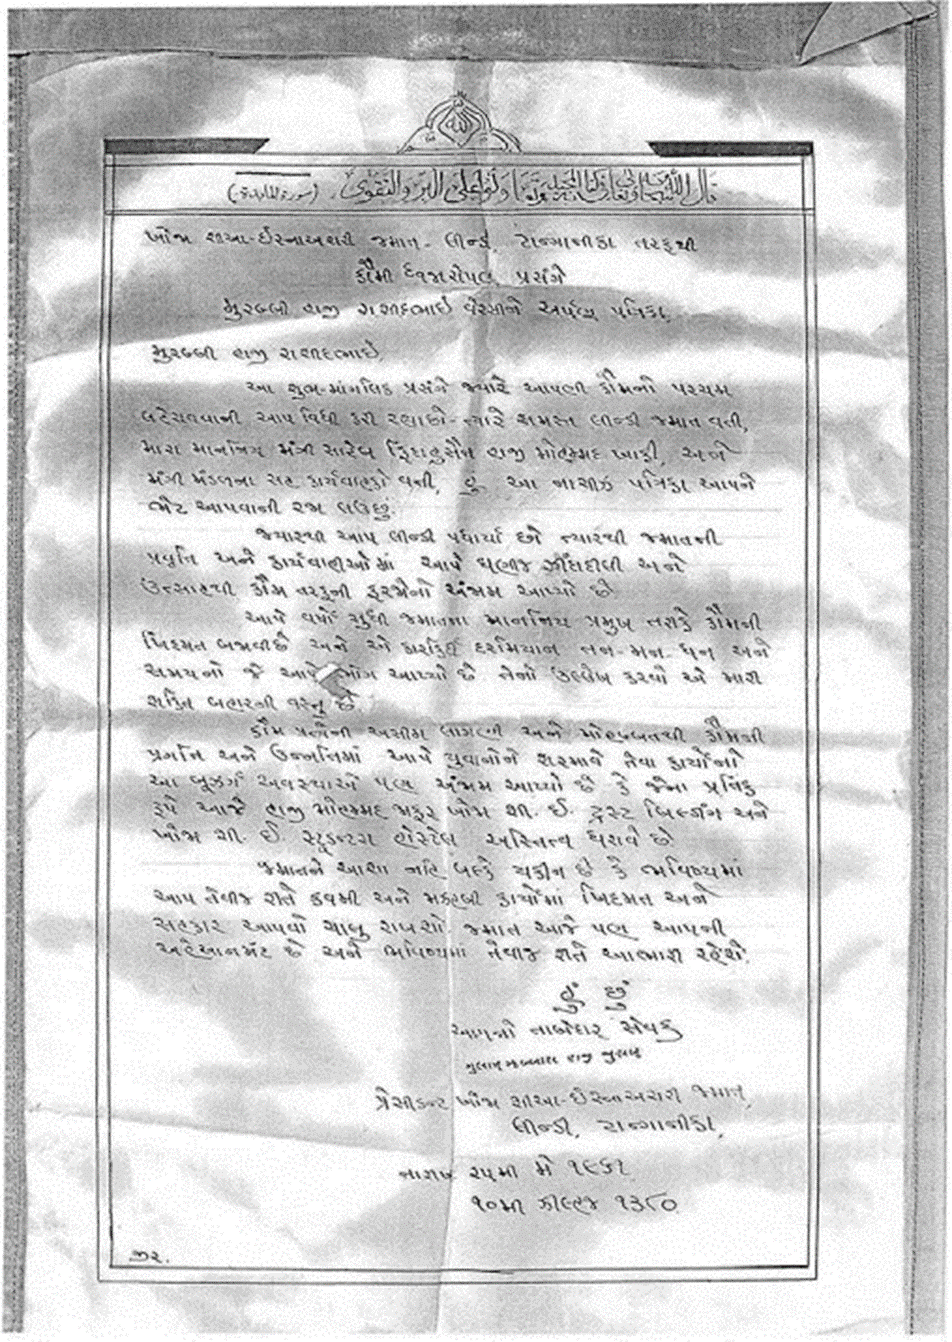 الله
قال الله سبحانه وتعالى في كتابه المجيد وتعاونوا على البر والتقوى (سورة المائدة)
ખોજા શીઆ-ઈસ્નાઅશરી જમાત - લીન્ડી, ટાન્ગાનીકા તરફથી
કૌમી ધ્વજારોપણ પ્રસંગે
મુરબ્બી હાજી રાશીદભાઈ વેરસીને અર્પણ પત્રિકા,
મુરબ્બી હાજી રાશીદભાઈ,
આ શુભ-માંગલિક પ્રસંગે જ્યારે આપણી કૌમનો પરચમ
લહેરાવવાની આપ વિધી કરી રહ્યાછો - ત્યારે સમસ્ત લીન્ડી જમાત વતી,
મારા માનનિય મંત્રી સાહેબ ફિદાહુસૈન હાજી મોહમ્મદ ખાકી, અને
મંત્રી મંડળના સહ કાર્યવાહકો વતી, હું આ નાચીઝ પત્રિકા આપને
ભેટ આપવાની રજા લઉછું.
જ્યારથી આપ લીન્ડી પધાર્યા છો ત્યારથી જમાતની
પ્રવૃત્તિ અને કાર્યવાહીઓમાં આપે ઘણીજ ઝીંદાદીલી અને
ઉત્સાહથી કૌમ તરફની ફરજોનો અંજામ આપ્યો છે
આપે વર્ષો સુધી જમાતના માનનિય પ્રમુખ તરીકે કૌમની
ખિદમત બજાવીછે અને એ કારકિર્દી દરમિયાન તન-મન-ધન અને
સમયનો જે આપે ભોગ આપ્યો છે તેનો ઉલ્લેખ કરવો એ મારી
શક્તિ બહારની વસ્તૂ છે.
કૌમ પ્રત્યેની અસીમ લાગણી અને મોહબ્બતથી કૌમની
પ્રગતિ અને ઉન્નતિમાં આપે યુવાનોને શરમાવે તેવા કાર્યોનો
આ બૂઝર્ગ અવસ્થાએ પણ અંજામ આપ્યો છે કે જેના પ્રતિક
રૂપે આજે હાજી મોહમ્મદ જાફર ખોજા શી. ઈ. ટ્રસ્ટ બિલ્ડીંગ અને
ખોજા શી. ઈ. સ્ટૂડન્ટસ હોસ્ટેલ અસ્તિત્વ ધરાવે છે.
જમાતને આશા નહિ બલ્કે યકીન છે કે ભવિષ્યમાં
આપ તેવીજ રીતે કવમી અને મઝહબી કાર્યોમાં ખિદમત અને
સહકાર આપવો ચાલુ રાખશો. જમાત આજે પણ આપની
અહેસાનમંદ છે અને ભવિષ્યમાં તેવીજ રીતે આભારી રહેશે.
હું છું
આપનો તાબેદાર સેવક
ગુલામઅબ્બાસ હાજી
પ્રેસીડન્ટ ખોજા શીઆ-ઈસ્નાઅશરી જમાત,
લીન્ડી, ટાન્ગાનીકા,
તારીખ ૨૫મી મે ૧૯૬૧
૧૦મી ઝીલ્હજ ૧૩૮૦